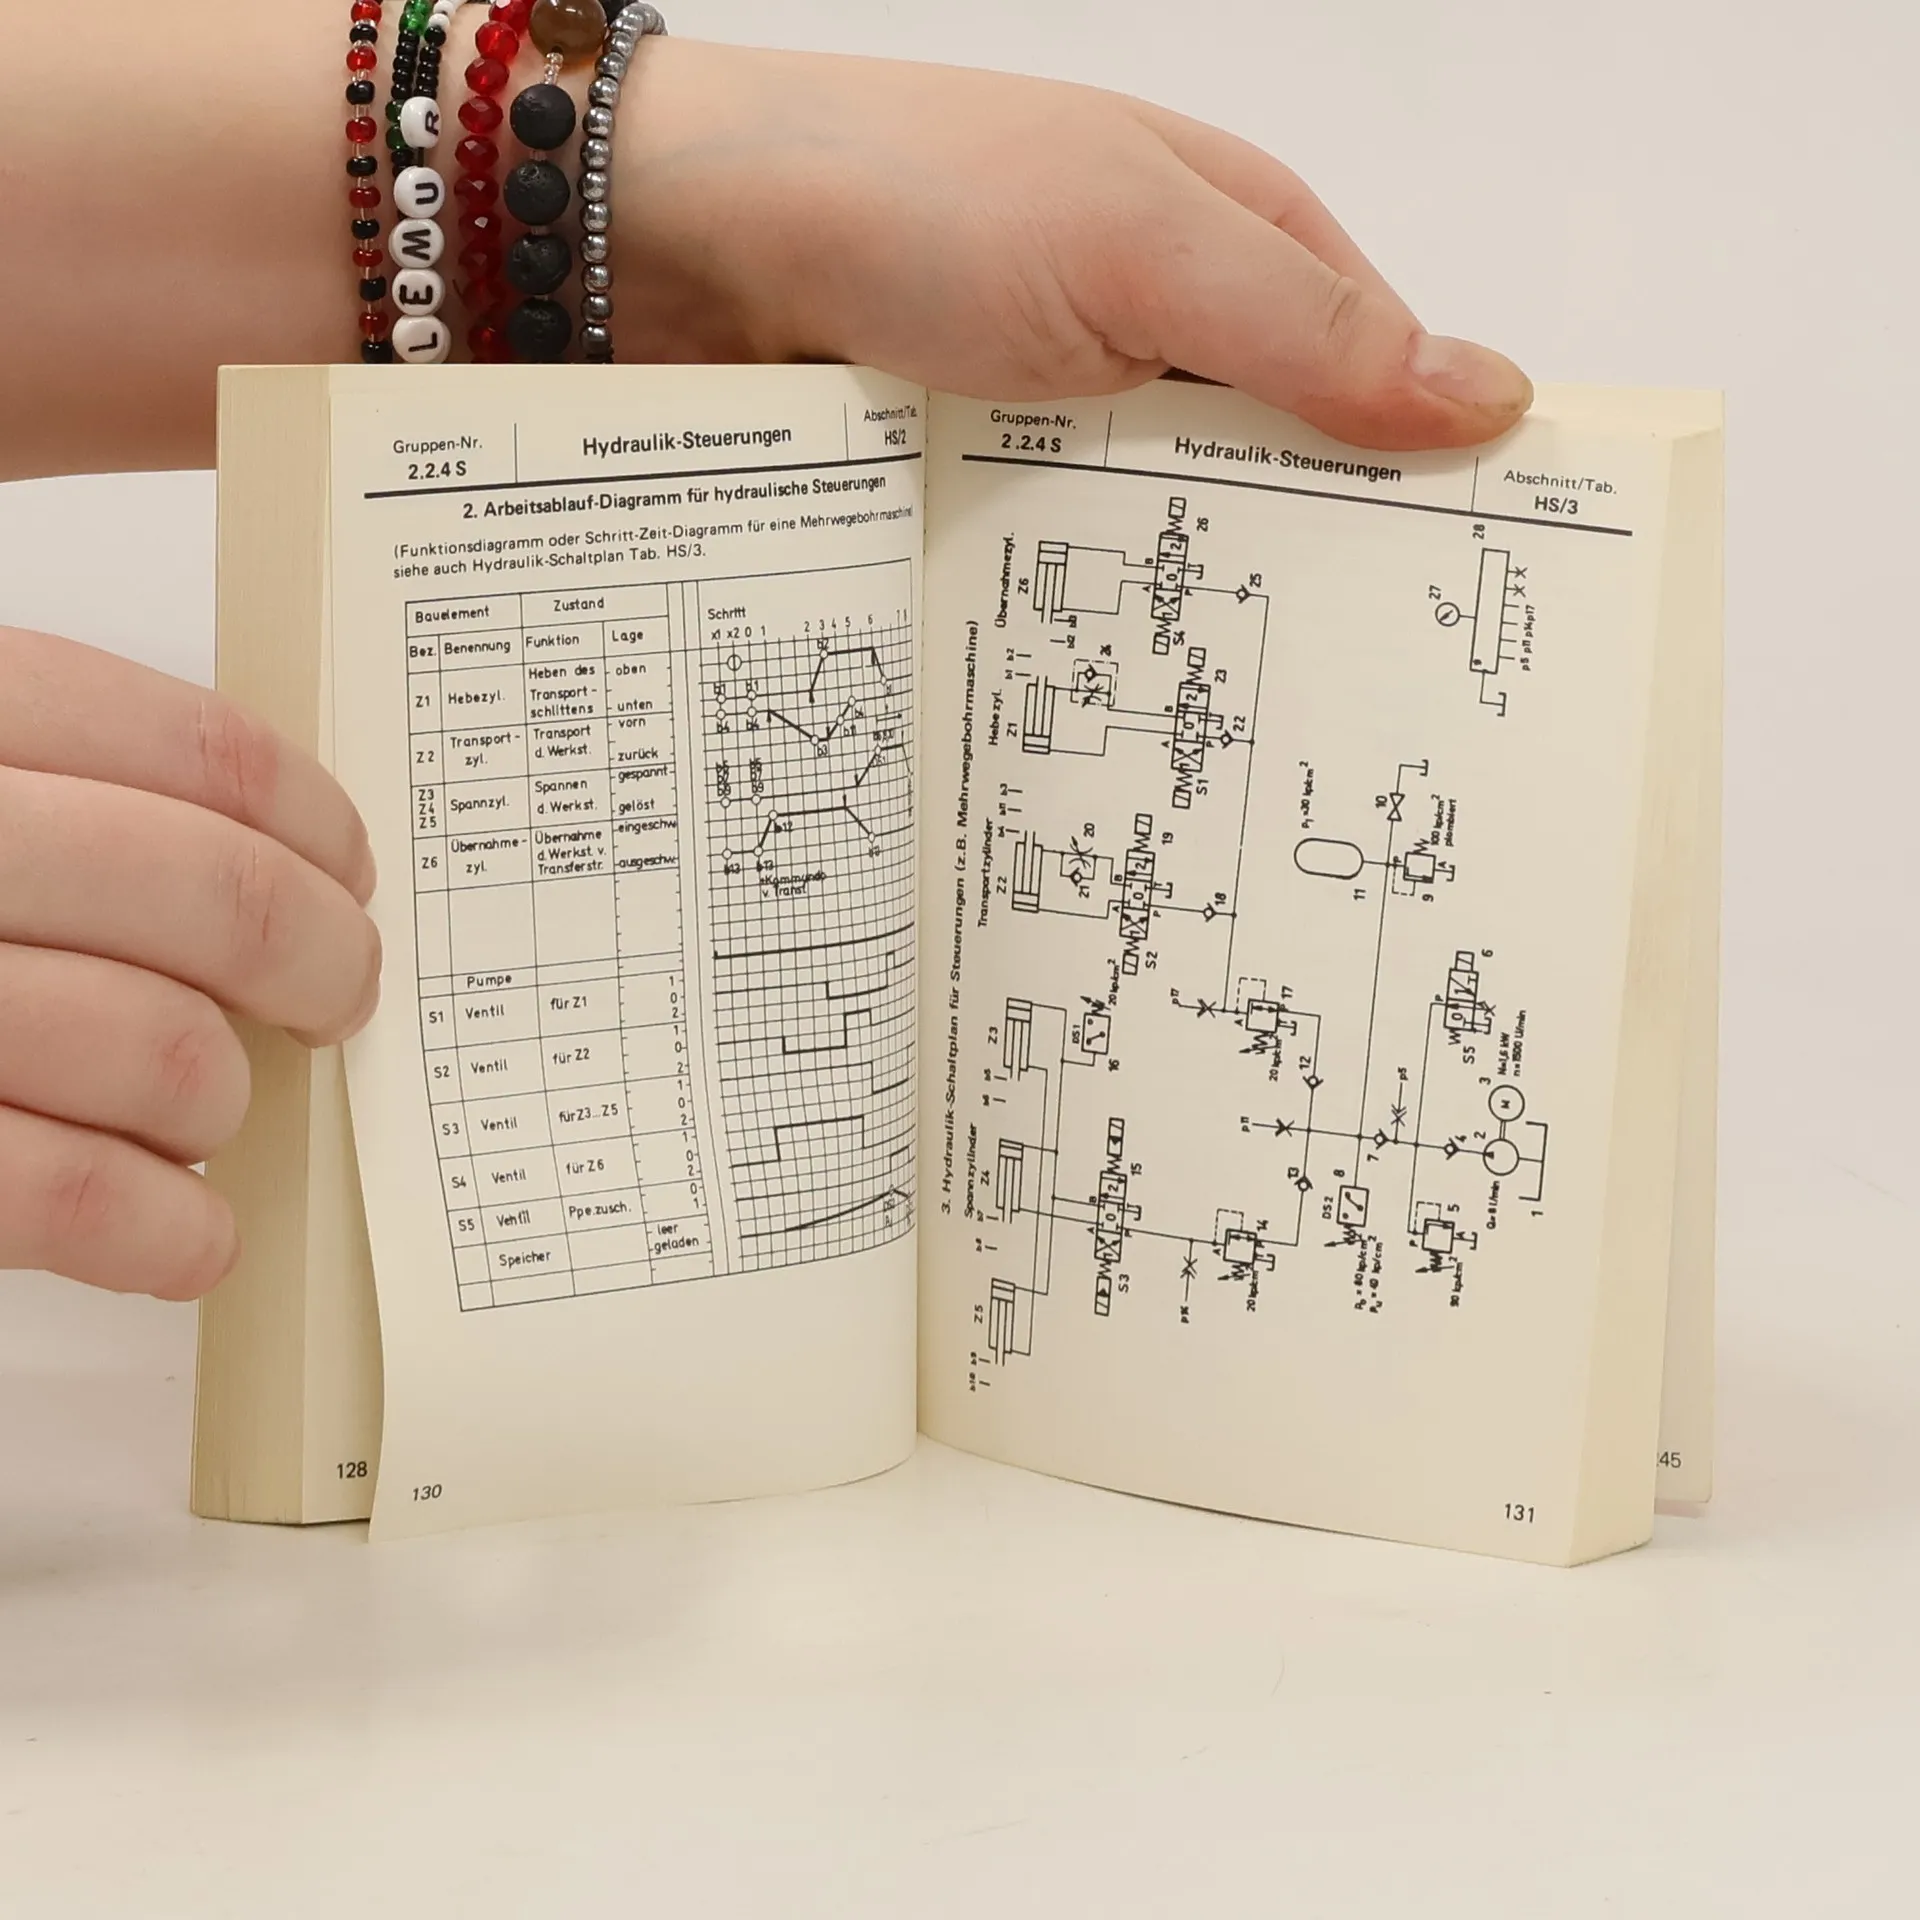 LEMUR
Gruppen-Nr.
2.2.4 S
Hydraulik-Steuerungen
Abschnitt/Tab.
HS/2
2. Arbeitsablauf-Diagramm für hydraulische Steuerungen
(Funktionsdiagramm oder Schritt-Zeit-Diagramm für eine Mehrwegebohrmaschine)
siehe auch Hydraulik-Schaltplan Tab. HS/3.
Bauelement Zustand Schritt
Bez. Benennung Funktion Lage x1 x2 0 1 2 3 4 5 6 7 8
Z1 Hebezyl. Heben des Transport-schlittens oben unten
Z2 Transport-zyl. Transport d. Werkst. vorn zurück
Z3 Z4 Z5 Spannzyl. Spannen d. Werkst. gespannt gelöst
Z6 Übernahme-zyl. Übernahme d. Werkst. v. Transferstr. eingeschw. ausgeschw.
Kommando
v. Transf.
Pumpe
S1 Ventil für Z1 1 0 2
S2 Ventil für Z2 1 0 2
S3 Ventil für Z3...Z5 1 0 2
S4 Ventil für Z6 1 0 2
S5 Ventil Ppe.zusch. 0 1
Speicher leer geladen
128
130
Gruppen-Nr.
2.2.4 S
Hydraulik-Steuerungen
Abschnitt/Tab.
HS/3
3. Hydraulik-Schaltplan für Steuerungen (z.B. Mehrwegebohrmaschine)
Spannzylinder
Transportzylinder
Hebezyl.
Übernahmezyl.
Z5
Z4
Z3
Z2
Z1
Z6
b10 b9
b8 b7
b6 b5
b4 b11 b3
b1 b2
b12 b13
S3
15
DS1
16
20 kp/cm²
S2
19
20
21
S1
23
24
S4
26
25
22
18
p14
14
20 kp/cm²
13
p11
12
p17
17
20 kp/cm²
DS2
8
7
p5
11
10
9
100 kp/cm²
plombiert
5
4
2
3
M
N=1,6 kW
n=1500 U/min
Q=8 l/min
1
S5
6
27
28
p5 p11 p14 p17
131
45